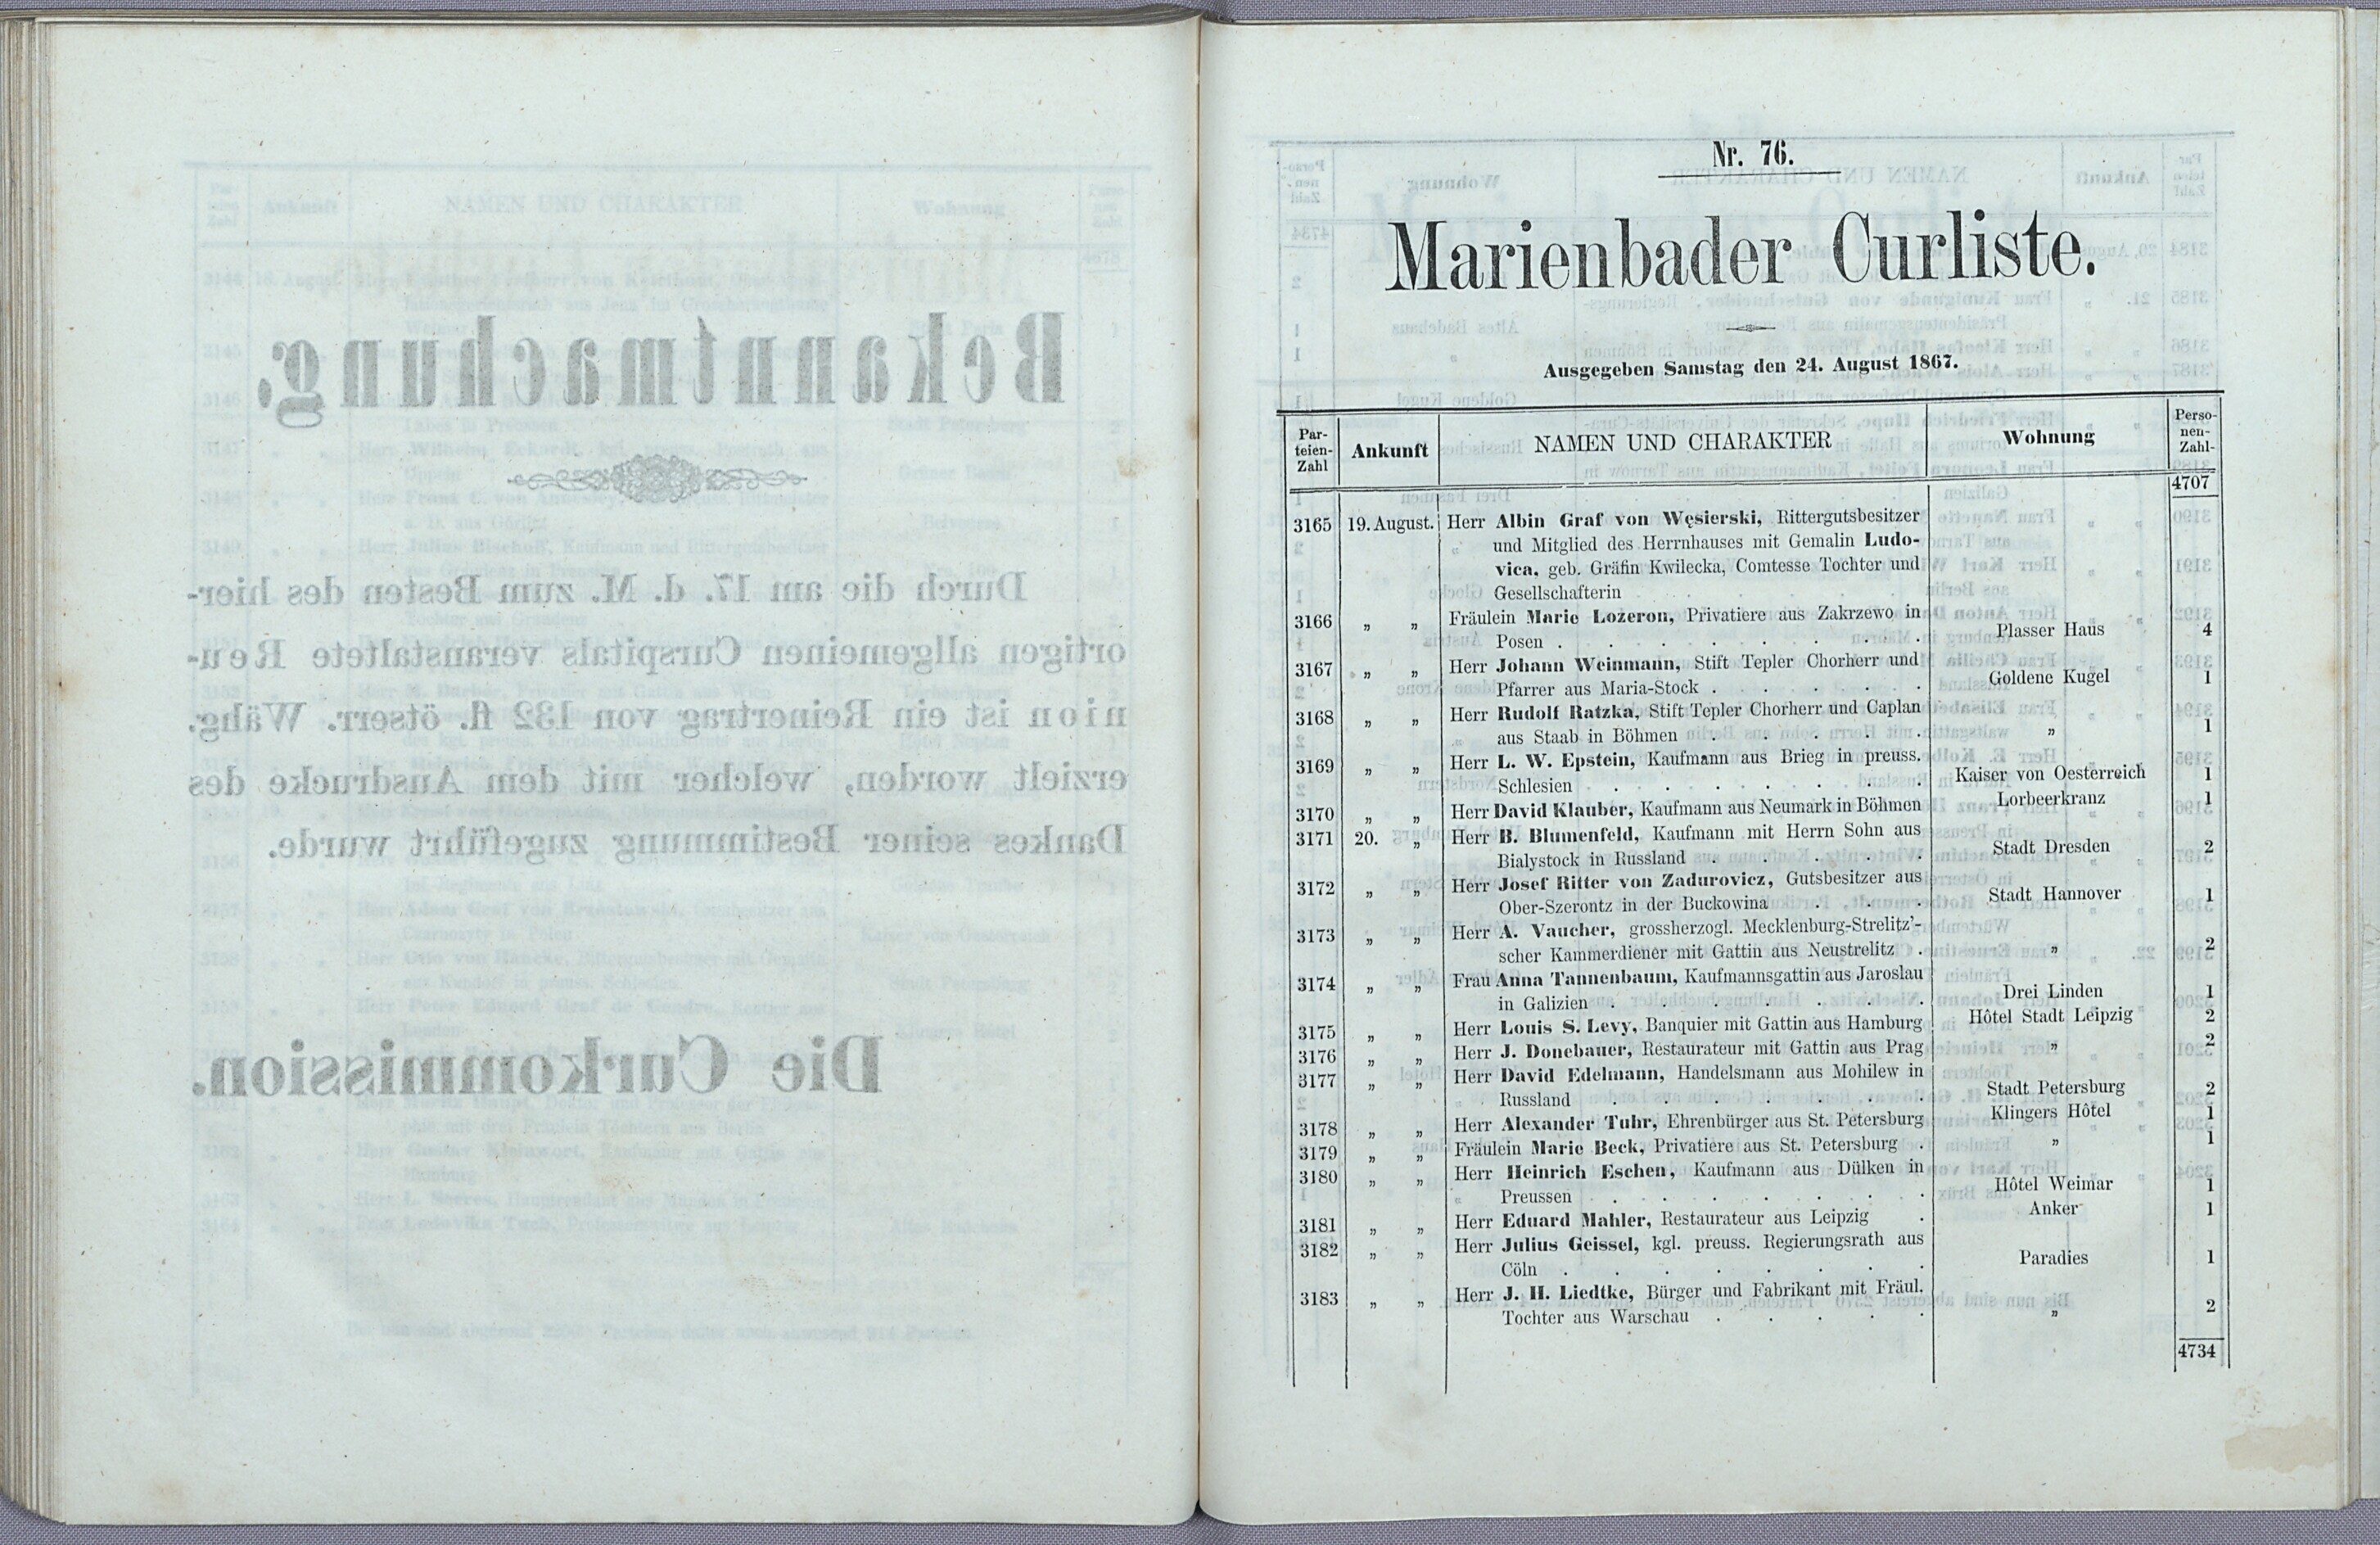 Bekanntmachung.
Durch die am 17. d. M. zum Besten des hier-
ortigen allgemeinen Curspitals veranstaltete Reu-
nion ist ein Reinertrag von 132 fl. ötserr. Währg.
erzielt worden, welcher mit dem Ausdrucke des
Dankes seiner Bestimmung zugeführt wurde.
Die Curkommission.
Nr. 76.
Marienbader Curliste.
Ausgegeben Samstag den 24. August 1867.
Par-
teien-
Zahl
Ankunft
NAMEN UND CHARAKTER
Wohnung
Perso-
nen-
Zahl-
4707
3165 19. August. Herr Albin Graf von Węsierski, Rittergutsbesitzer
und Mitglied des Herrnhauses mit Gemalin Ludo-
vica, geb. Gräfin Kwilecka, Comtesse Tochter und
Gesellschafterin
3166 „ „ Fräulein Marie Lozeron, Privatiere aus Zakrzewo in
Posen . . . . . . . . Plasser Haus 4
3167 „ „ Herr Johann Weinmann, Stift Tepler Chorherr und
Pfarrer aus Maria-Stock . . . . . Goldene Kugel 1
3168 „ „ Herr Rudolf Ratzka, Stift Tepler Chorherr und Caplan
aus Staab in Böhmen . . . . . „ 1
3169 „ „ Herr L. W. Epstein, Kaufmann aus Brieg in preuss.
Schlesien . . . . . . . Kaiser von Oesterreich 1
3170 „ „ Herr David Klauber, Kaufmann aus Neumark in Böhmen Lorbeerkranz 1
3171 20. „ Herr B. Blumenfeld, Kaufmann mit Herrn Sohn aus
Bialystock in Russland . . . . . Stadt Dresden 2
3172 „ „ Herr Josef Ritter von Zadurovicz, Gutsbesitzer aus
Ober-Szerontz in der Buckowina . . . Stadt Hannover 1
3173 „ „ Herr A. Vaucher, grossherzogl. Mecklenburg-Strelitz'-
scher Kammerdiener mit Gattin aus Neustrelitz . „ 2
3174 „ „ Frau Anna Tannenbaum, Kaufmannsgattin aus Jaroslau
in Galizien . . . . . . . Drei Linden 1
3175 „ „ Herr Louis S. Levy, Banquier mit Gattin aus Hamburg Hôtel Stadt Leipzig 2
3176 „ „ Herr J. Donebauer, Restaurateur mit Gattin aus Prag „ 2
3177 „ „ Herr David Edelmann, Handelsmann aus Mohilew in
Russland . . . . . . . Stadt Petersburg 2
3178 „ „ Herr Alexander Tuhr, Ehrenbürger aus St. Petersburg Klingers Hôtel 1
3179 „ „ Fräulein Marie Beck, Privatiere aus St. Petersburg . „ 1
3180 „ „ Herr Heinrich Eschen, Kaufmann aus Dülken in
Preussen . . . . . . . Hôtel Weimar 1
3181 „ „ Herr Eduard Mahler, Restaurateur aus Leipzig . Anker 1
3182 „ „ Herr Julius Geissel, kgl. preuss. Regierungsrath aus
Cöln . . . . . . . . Paradies 1
3183 „ „ Herr J. H. Liedtke, Bürger und Fabrikant mit Fräul.
Tochter aus Warschau . . . . . „ 2
4734